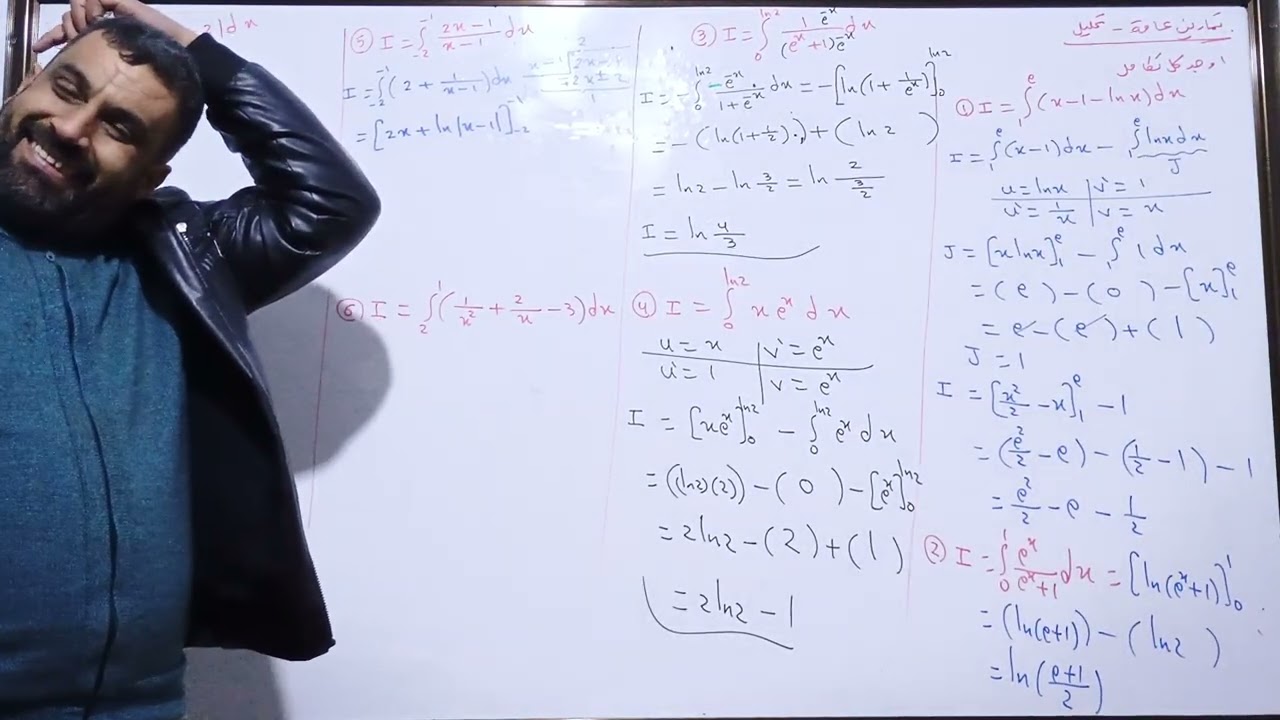 تمارين عامة - تحليل
أوجد كل تكامل
① I = ∫₁ᵉ (x-1-lnx)dx
I = ∫₁ᵉ (x-1)dx - ∫₁ᵉ lnx dx
J
u = lnx | v' = 1
u' = 1/x | v = x
J = [x lnx]₁ᵉ - ∫₁ᵉ 1 dx
= (e) - (0) - [x]₁ᵉ
= e - (e) + (1)
J = 1
I = [x²/2 - x]₁ᵉ - 1
= (e²/2 - e) - (1/2 - 1) - 1
= e²/2 - e - 1/2
② I = ∫₀¹ eˣ/(eˣ+1) dx = [ln(eˣ+1)]₀¹
= (ln(e+1)) - (ln2)
= ln((e+1)/2)
③ I = ∫₀^ln2 (1 e⁻ˣ)/((eˣ+1)e⁻ˣ) dx
I = -∫₀^ln2 -e⁻ˣ/(1+e⁻ˣ) dx = -[ln(1+1/eˣ)]₀^ln2
= -(ln(1+1/2)) + (ln2)
= ln2 - ln 3/2 = ln 2/(3/2)
I = ln 4/3
④ I = ∫₀^ln2 x eˣ dx
u = x | v' = eˣ
u' = 1 | v = eˣ
I = [xeˣ]₀^ln2 - ∫₀^ln2 eˣ dx
= ((ln2)(2)) - (0) - [eˣ]₀^ln2
= 2ln2 - (2) + (1)
= 2ln2 - 1
⑤ I = ∫₋₂⁻¹ (2x-1)/(x-1) dx
I = ∫₋₂⁻¹ (2 + 1/(x-1))dx
= [2x + ln|x-1|]₋₂⁻¹
⑥ I = ∫₂¹ (1/x² + 2/x - 3)dx
|dx